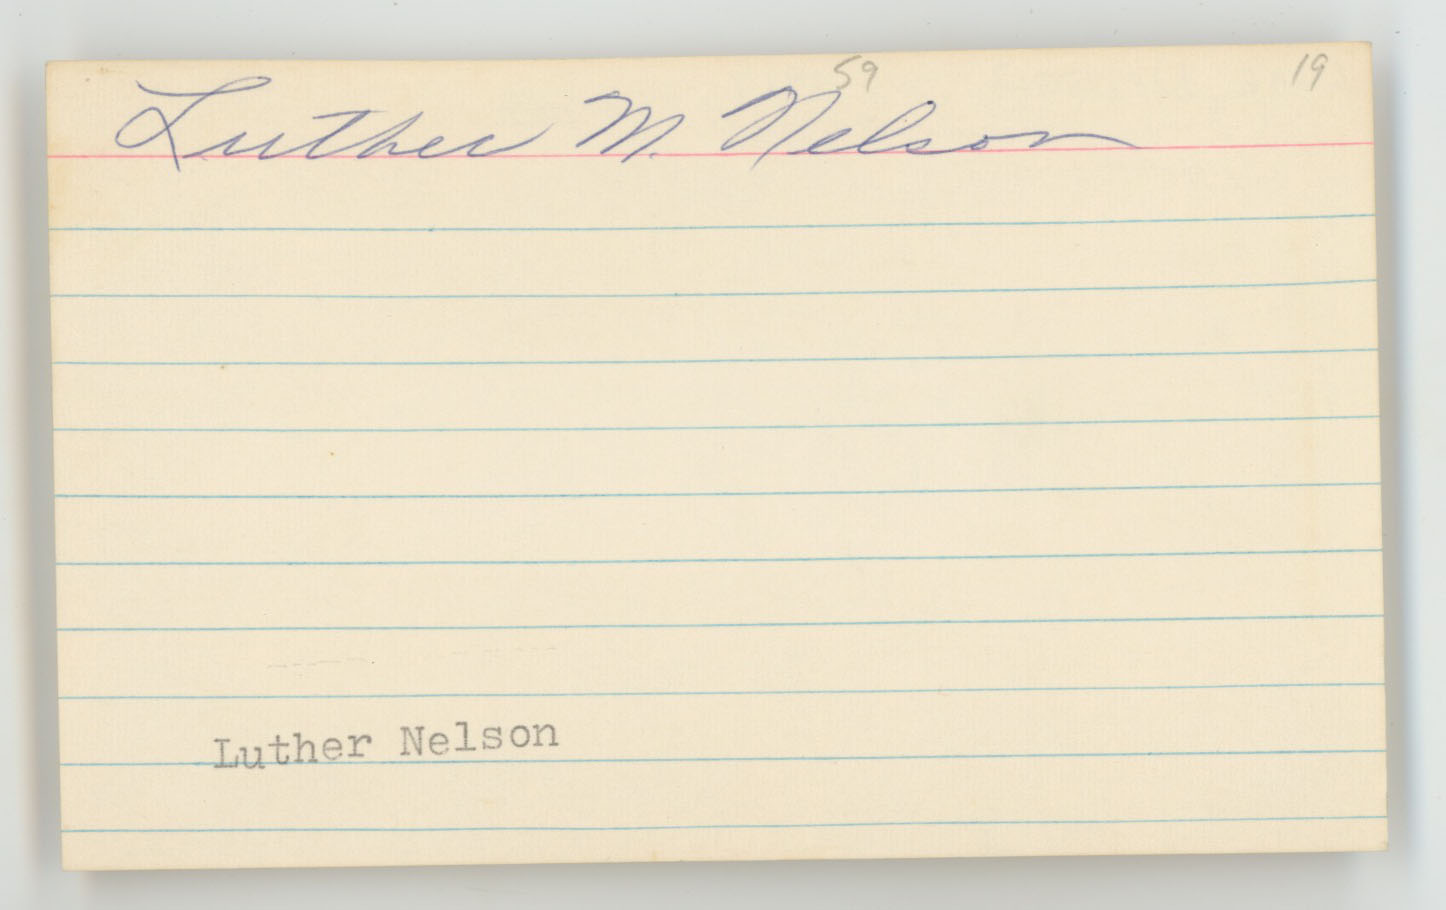 59 19
Luther M. Nelson
Luther Nelson